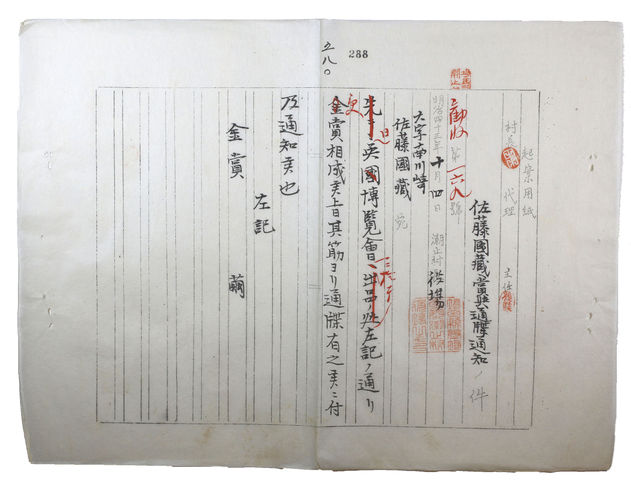 288
五八〇
起案用紙
村長 代理
主任
佐藤國藏賞與通牒通知ノ件
勸收第一六九號
明治四十三年十月四日 潮止村役場
大字南川崎
佐藤國藏 宛
先日英國博覽會出品 左記ノ通リ
金賞相成候上日其筋ヨリ通牒有之候ニ付
及通知候也
左記
金賞 繭